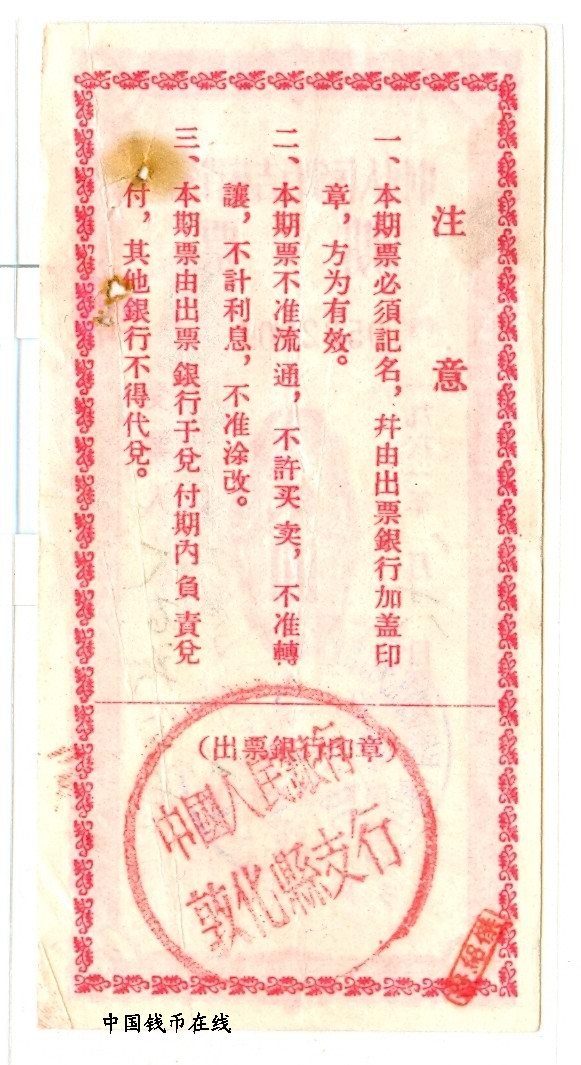 注意
一、本期票必須記名，幷由出票銀行加盖印
章，方为有效。
二、本期票不准流通，不許买卖，不准轉
讓，不計利息，不准涂改。
三、本期票由出票銀行于兌付期內負責兌
付，其他銀行不得代兌。
（出票銀行印章）
中國人民銀行
敦化縣支行
中国钱币在线